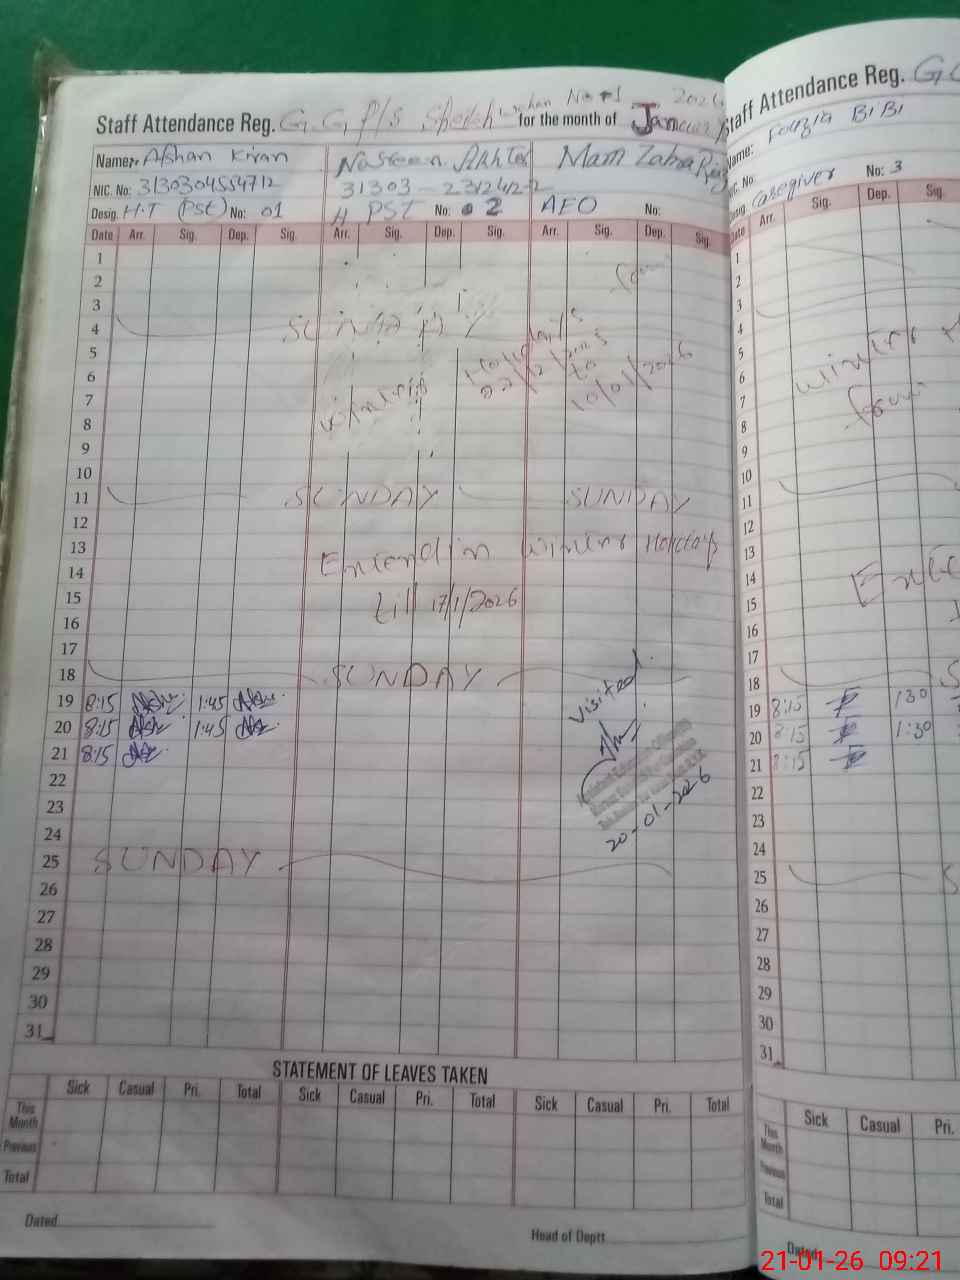 Staff Attendance Reg. G.G P/S Sheikh No #1 for the month of January 2026
Name: Afshan Kiran
NIC. No: 3130304554712
Desig. H.T (PST) No: 01
Nasreen Akhter
31303-2312412-2
PST No: 2
Mam Zahra
AEO No:
Date Arr. Sig. Dep. Sig. Arr. Sig. Dep. Sig. Arr. Sig. Dep. Sig.
1
2
3
4 SUNDAY
5
6
7
8
9
10
winters Holidays
22/12/2025
to
10/01/2026
11 SUNDAY SUNDAY
12
13 Extend in winters Holidays
14
15 till 17/1/2026
16
17
18 SUNDAY
19 8:15 1:45
20 8:15 1:45
21 8:15
Visited
20-01-2026
22
23
24
25 SUNDAY
26
27
28
29
30
31
STATEMENT OF LEAVES TAKEN
Sick Casual Pri. Total Sick Casual Pri. Total Sick Casual Pri. Total
This Month
Previous
Total
Dated
Head of Deptt
Staff Attendance Reg. G.G
Name: Fouzia BiBi
NIC. No:
Desig. Caregiver No: 3
Date Arr. Sig. Dep. Sig.
1
2
3
4
5
6 winters
7
8
9
10
11
12
13
14
15
16
17
18
19 8:15 1:30
20 8:15 1:30
21 8:15
22
23
24
25
26
27
28
29
30
31
Sick Casual Pri.
This Month
Previous
Total
Dated
21-01-26 09:21